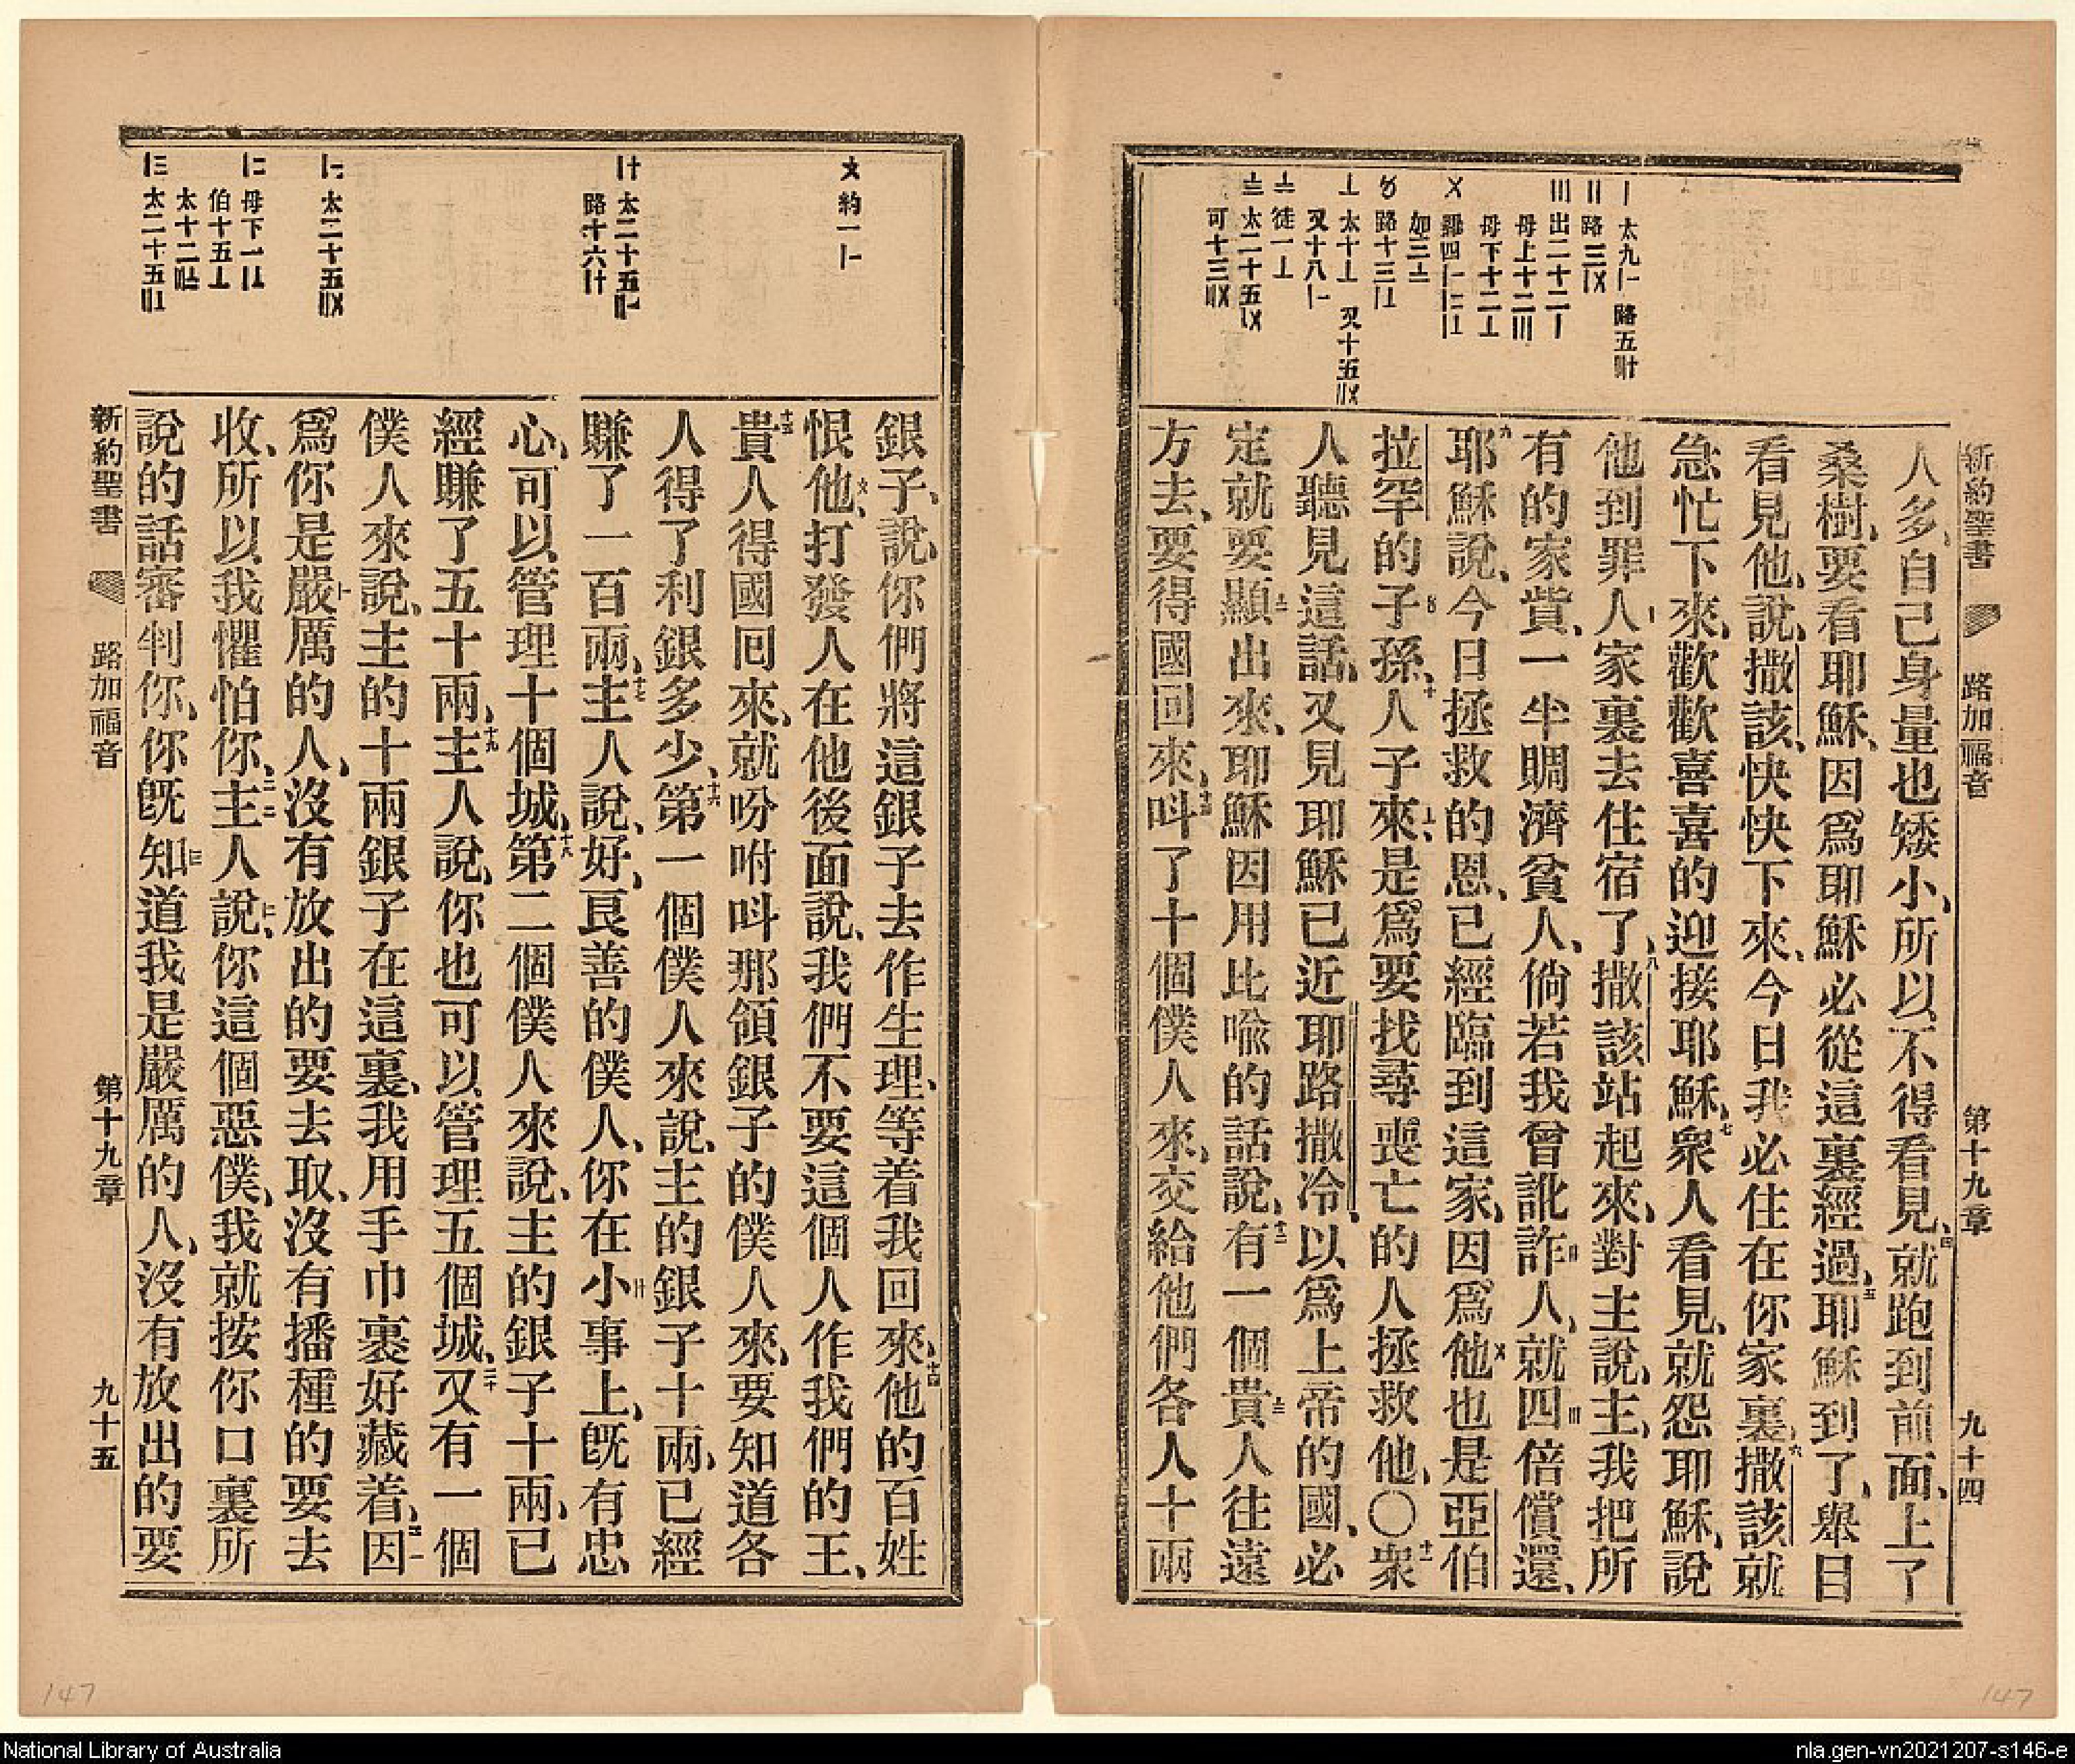 新約聖書　路加福音　第十九章　九十四
丨 太九〡 路五卅
〢 路三
〣 出二十二〡
母上十二〣
母下十二〦
〤 羅四
加三
〥 路十三
〦 太十〦 又十五
又十八〡
〧 徒一〦
〨 太二十五
可十三
人多、自己身量也矮小、所以不得看見、四就跑到前面、上了
桑樹、要看耶穌、因爲耶穌必從這裏經過、五耶穌到了、舉目
看見他、說、撒該、快快下來、今日我必住在你家裏、六撒該就
急忙下來、歡歡喜喜的迎接耶穌、七衆人看見、就怨耶穌、說
他到罪人家裏去住宿了、八撒該站起來、對主說、主、我把所
有的家貲、一半賙濟貧人、倘若我曾訛詐人、就四倍償還、
九耶穌說、今日拯救的恩、已經臨到這家、因爲他也是亞伯
拉罕的子孫、十人子來、是爲要找尋喪亡的人拯救他、〇十一衆
人聽見這話、又見耶穌已近耶路撒冷、以爲上帝的國、必
定就要顯出來、耶穌因用比喩的話說、十二有一個貴人往遠
方去、要得國回來、十三呌了十個僕人來、交給他們各人十兩
〩 約一
〸 太二十五
路十六
太二十五
母下一
伯十五
太十二
太二十五
銀子、說、你們將這銀子去作生理、等着我回來、十四他的百姓
恨他、打發人在他後面說、我們不要這個人作我們的王、
十五貴人得國回來、就吩咐呌那領銀子的僕人來、要知道各
人得了利銀多少、十六第一個僕人來說、主的銀子十兩、已經
賺了一百兩、十七主人說、好、良善的僕人、你在小事上、旣有忠
心、可以管理十個城、十八第二個僕人來說、主的銀子十兩、已
經賺了五十兩、十九主人說、你也可以管理五個城、二十又有一個
僕人來說、主的十兩銀子在這裏、我用手巾裹好藏着、二一因
爲你是嚴厲的人、沒有放出的要去取、沒有播種的要去
收、所以我懼怕你、二二主人說、你這個惡僕、我就按你口裏所
說的話審判你、你旣知道我是嚴厲的人、沒有放出的要
新約聖書　路加福音　第十九章　九十五
147
147
National Library of Australia
nla.gen-vn2021207-s146-e